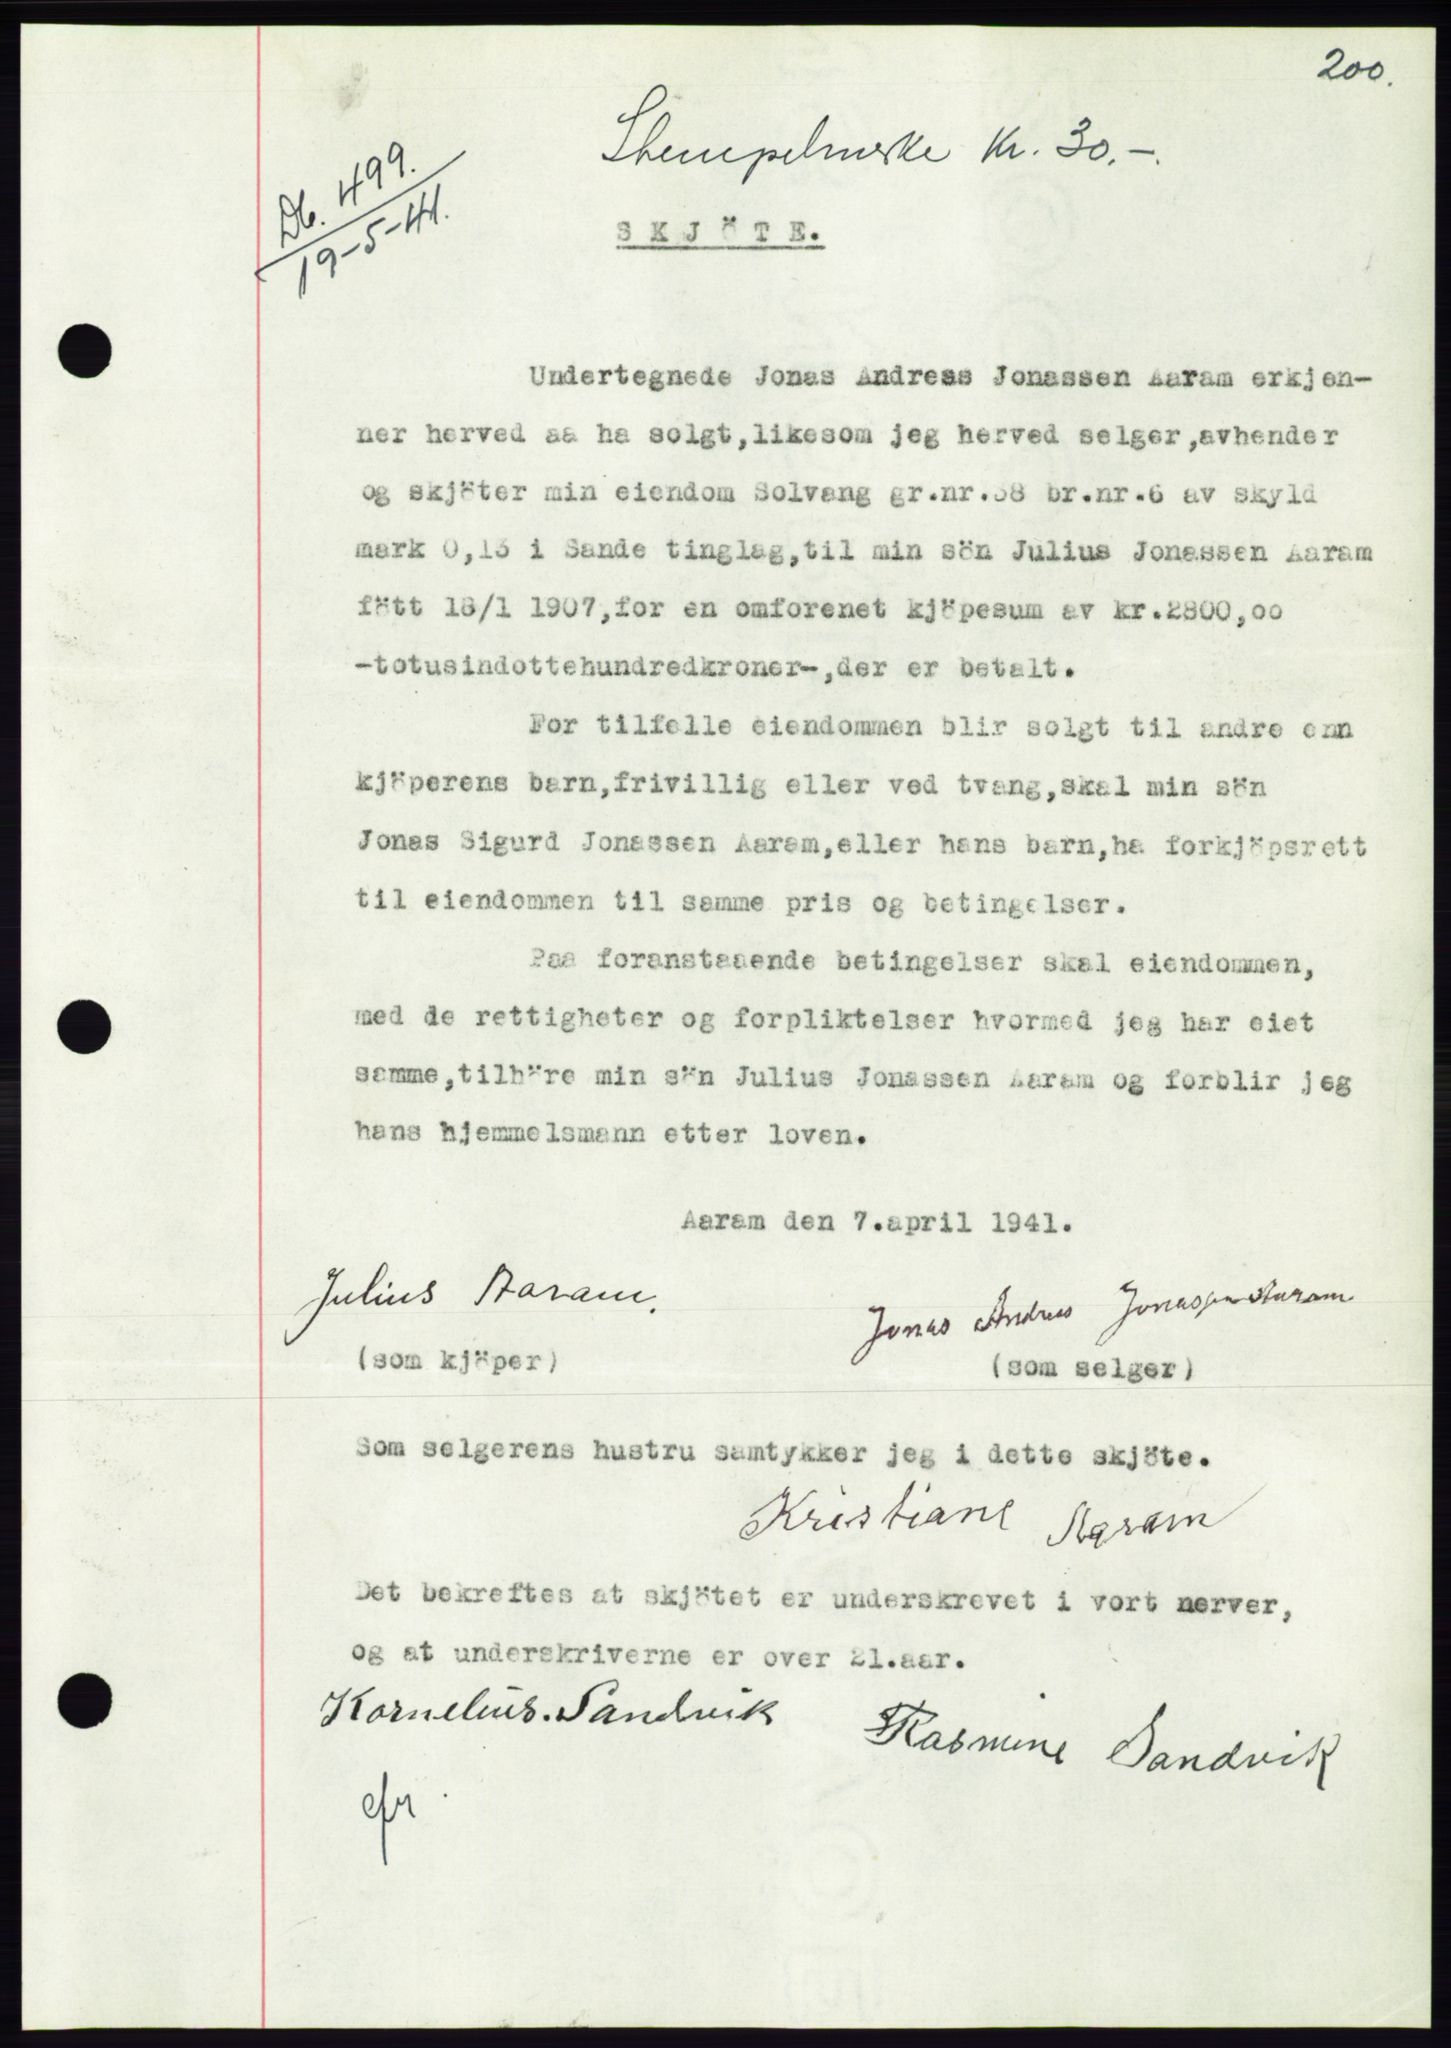 200.
Stempelmerke Kr. 30.-.
Db. 499.
19-5-41.
SKJÖTE.
Undertegnede Jonas Andreas Jonassen Aaram erkjen-
ner herved aa ha solgt,likesom jeg herved selger,avhender
og skjöter min eiendom Solvang gr.nr.38 br.nr.6 av skyld
mark 0,13 i Sande tinglag,til min sön Julius Jonassen Aaram
fött 18/1 1907,for en omforenet kjöpesum av kr.2800,oo
-totusindottehundredkroner-,der er betalt.
For tilfelle eiendommen blir solgt til andre enn
kjöperens barn,frivillig eller ved tvang,skal min sön
Jonas Sigurd Jonassen Aaram,eller hans barn,ha forkjöpsrett
til eiendommen til samme pris og betingelser.
Paa foranstaaende betingelser skal eiendommen,
med de rettigheter og forpliktelser hvormed jeg har eiet
samme,tilhöre min sön Julius Jonassen Aaram og forblir jeg
hans hjemmelsmann etter loven.
Aaram den 7.april 1941.
Julius Aaram.
Jonas Andreas Jonassen Aaram
(som kjöper)
(som selger)
Som selgerens hustru samtykker jeg i dette skjöte.
Kristiane Aaram
Det bekreftes at skjötet er underskrevet i vort nerver,
og at underskriverne er over 21.aar.
Kornelius. Sandvik
Rasmine Sandvik